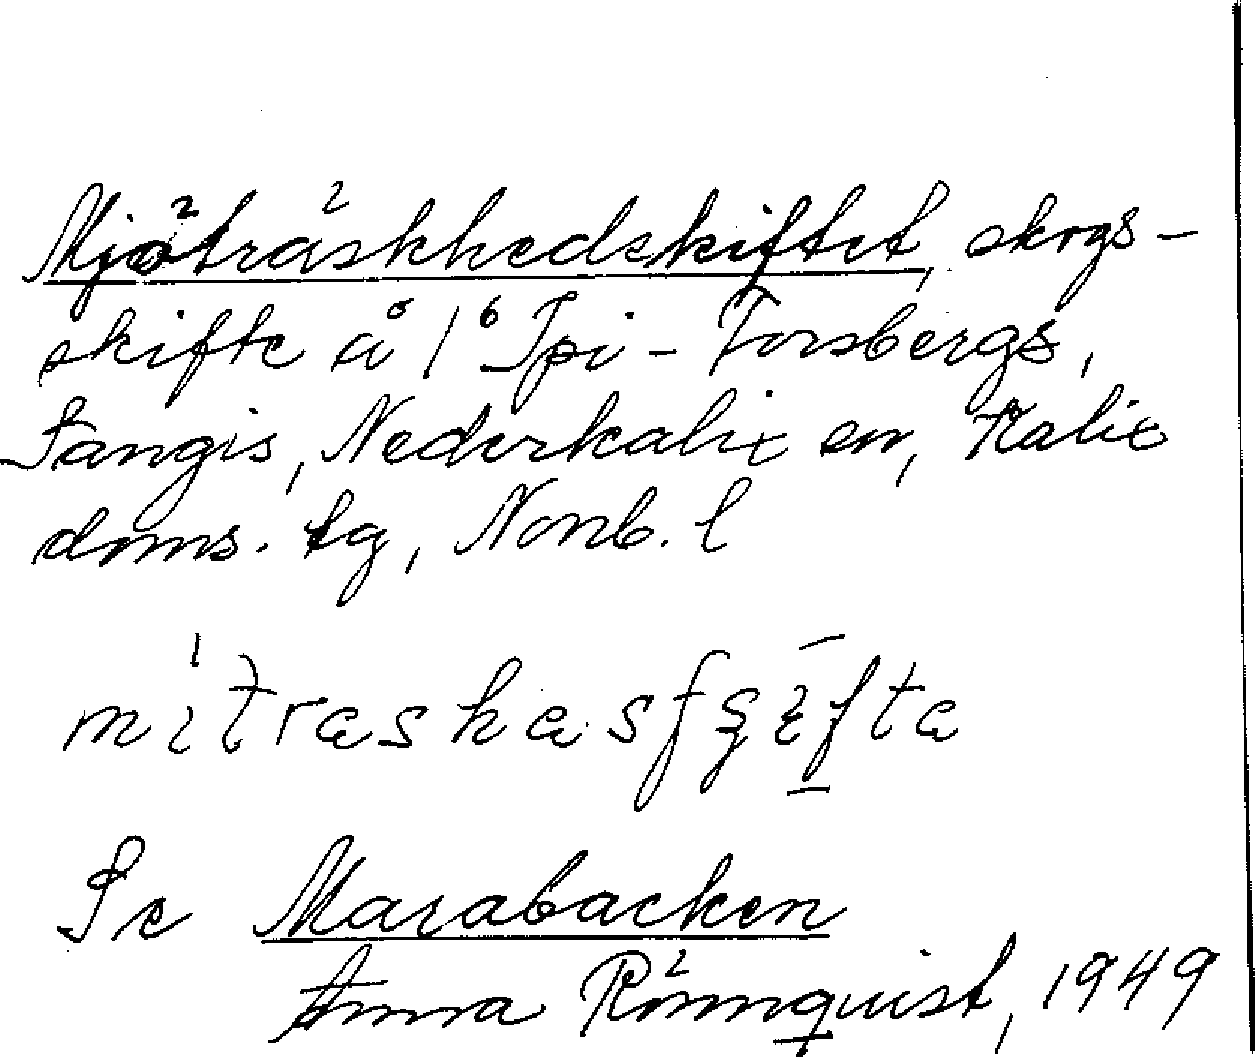 Mjöträskhedskiftet, skogs-
skifte å 1⁶ Spi-Forsbergs,
Sangis, Nederkalix sn, Kalix
doms. tg, Norrb. l
Se Marabacken
Anna Rönnquist, 1949